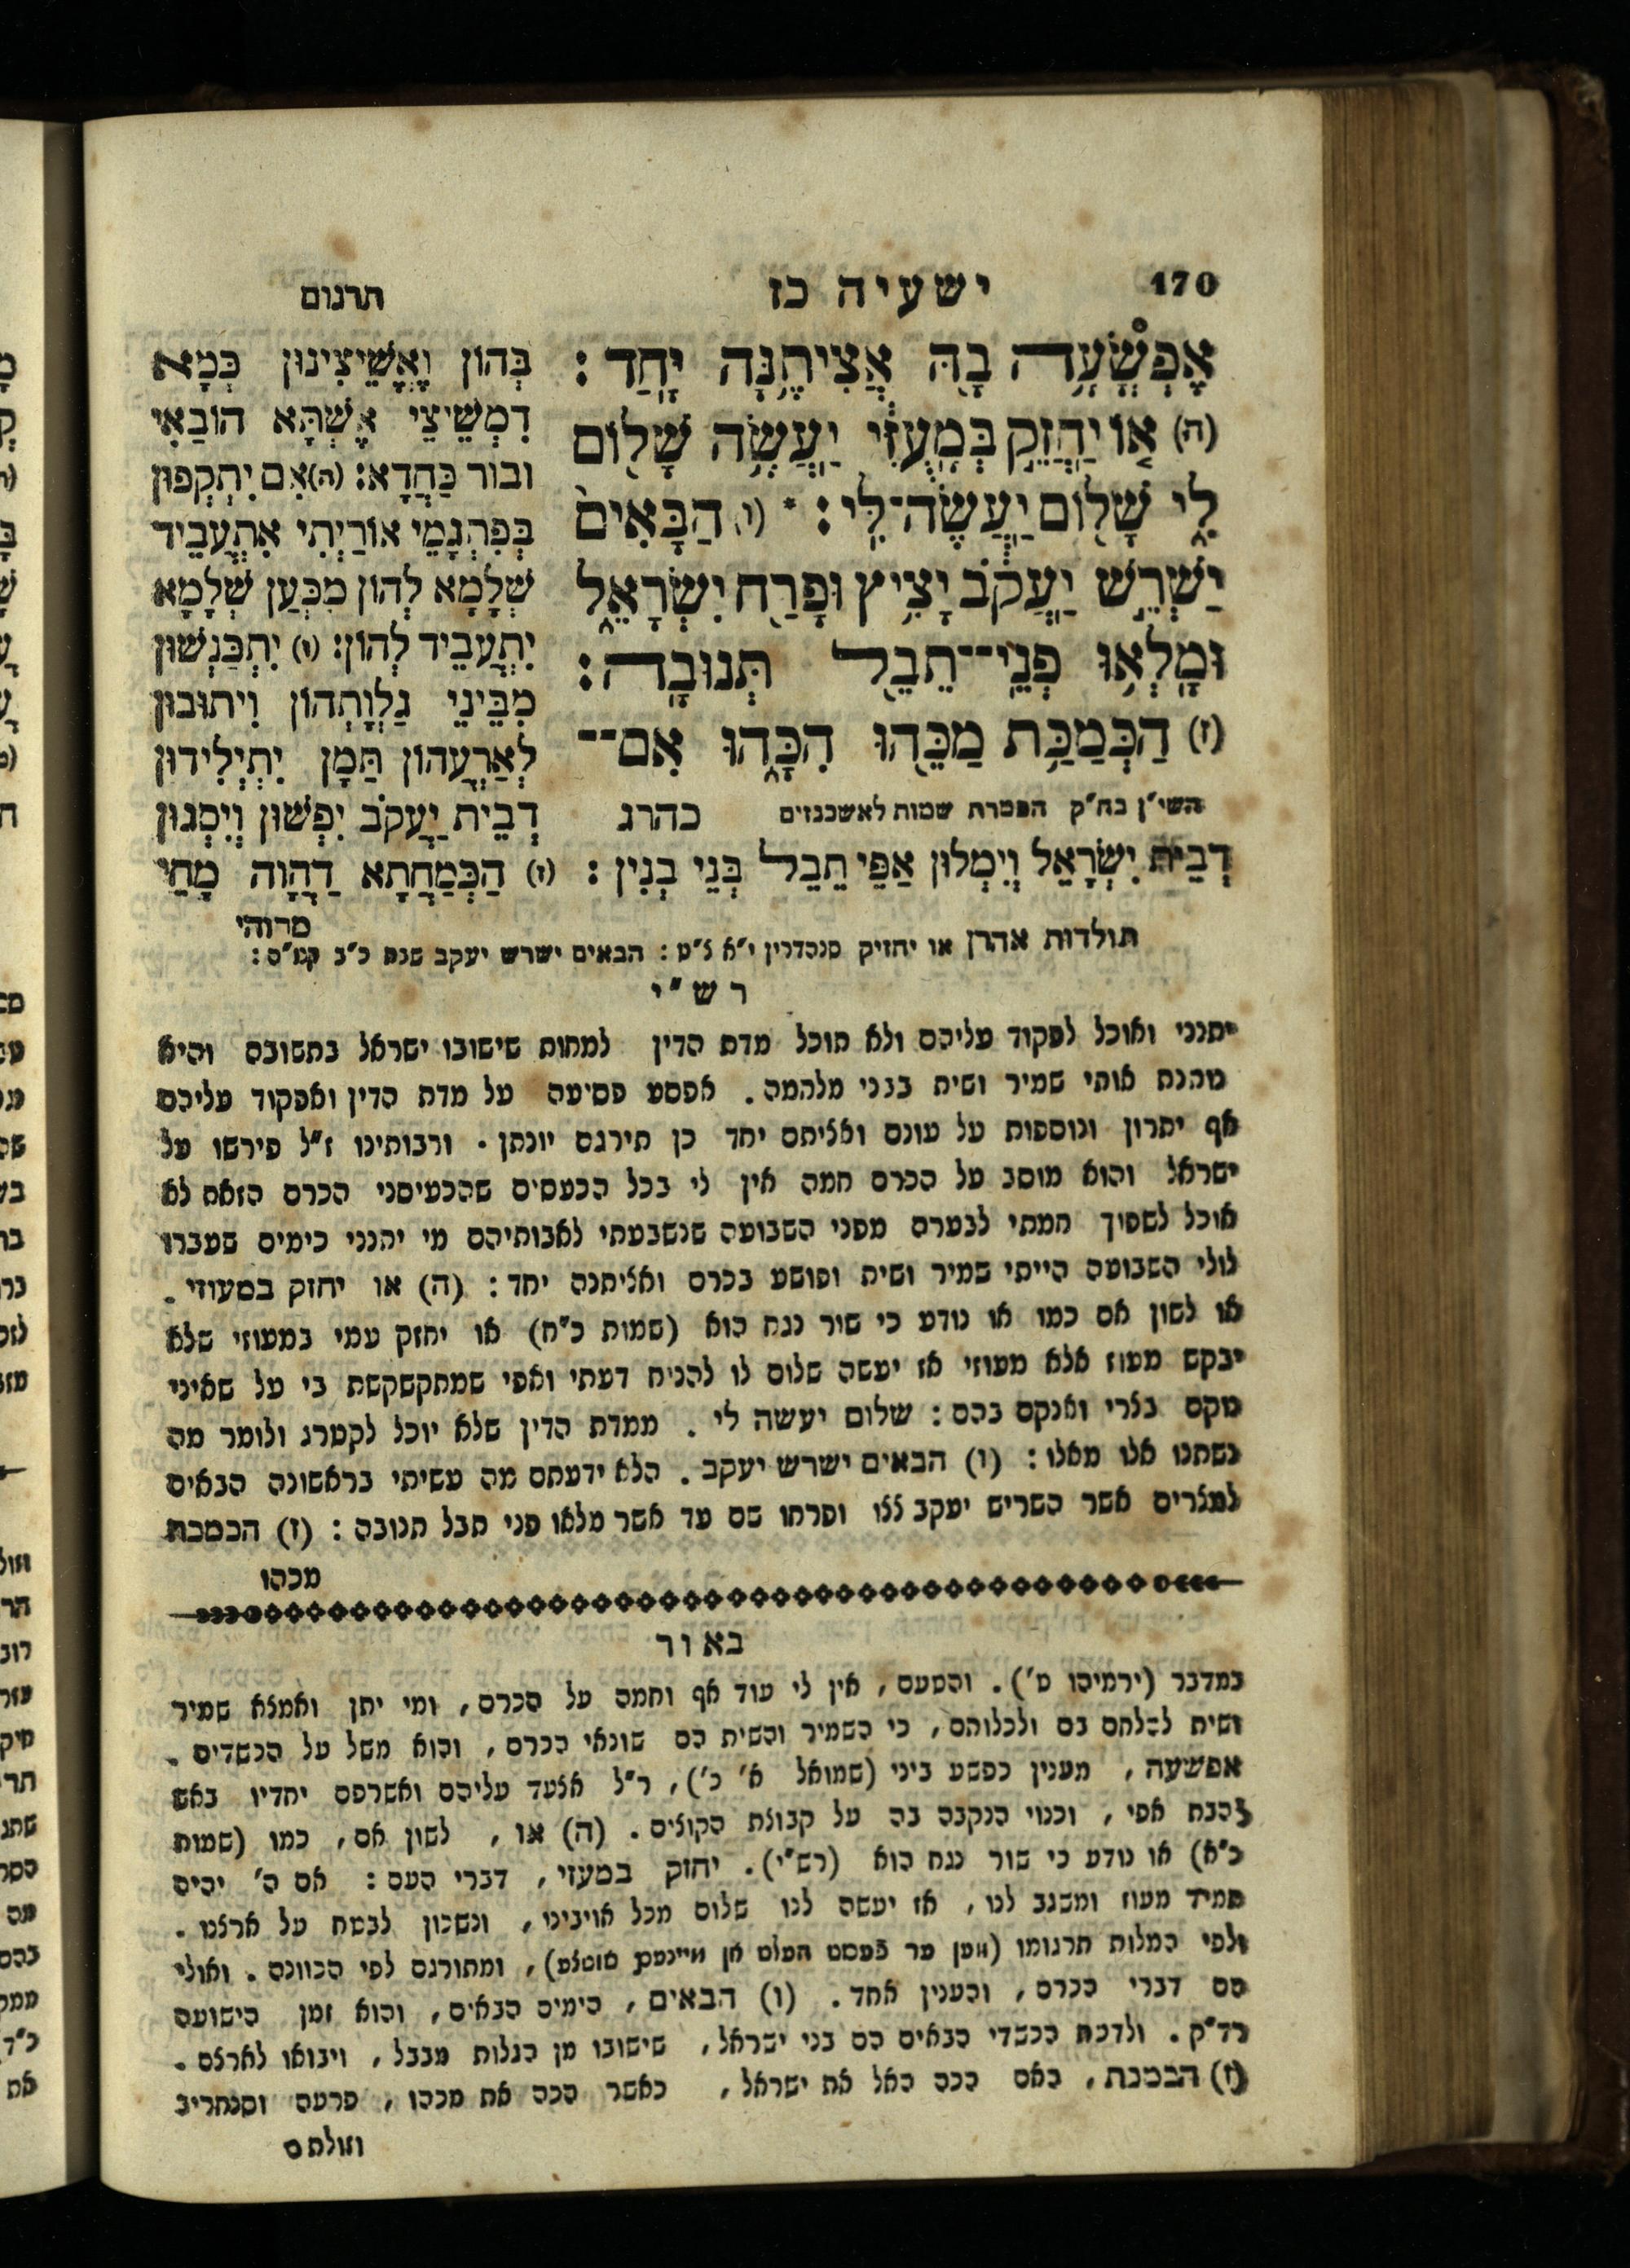 170
ישעיה כז
תרגום
אֶפְשְׂעָה בָהּ אֲצִיתֶנָּה יָּחַד :
(ה) אוֹ יַחֲזֵק בְּמָעֻזִּי יַעֲשֶׂה שָׁלוֹם
לִי שָׁלוֹם יַעֲשֶׂה־לִּי : * (ו) הַבָּאִים
יַשְׁרֵשׁ יַעֲקֹב יָצִיץ וּפָרַח יִשְׂרָאֵל
וּמָלְאוּ פְנֵי־תֵבֵל תְּנוּבָה :
(ז) הַכְּמַכַּת מַכֵּהוּ הִכָּהוּ אִם־
השי"ן בח"ק הפטרת שמות לאשכנזים
כהרג
בְּהוֹן וֶאֱשֵׁיצִינוּן כְּמָא
דִמְשֵׁיצֵי אֶשְׁתָּא הוֹבַאִי
ובור כַּחֲדָא : (ה) אִם יִתְקְפוּן
בְּפִתְגָמֵי אוֹרַיְתִי אִתְעֲבֵיד
שְׁלָמָא לְהוֹן מִכְּעַן שְׁלָמָא
יִתְעֲבֵיד לְהוֹן : (ו) יִתְכַּנְשׁוּן
מִבֵּינֵי גַלְוָתְהוֹן וִיתוּבוּן
לְאַרְעֲהוֹן תַּמָן יִתְיְלִידוּן
דְבֵית יַעֲקֹב יִפְשׁוּן וְיִסְגּוּן
דְבֵית יִשְׂרָאֵל וְיִמְלוּן אַפֵּי תֵּבֵל בְּנֵי בְנִין : (ז) הַכְּמַחֲתָא דַהֲוָה מָחֵי
מרוהי
תולדות אהרן או יחזיק סנהדרין י"א צ"ט : הבאים ישרש יעקב שבת כ"ב קמ"ה :
רש"י
יתנני ואוכל לפקוד עליהם ולא תוכל מדת הדין למחות שישובו ישראל בתשובה והיא
נוהגת אותי שמיר ושית בגני מלחמה . אפסע פסיעה על מדת הדין ואפקוד עליהם
אף יתרון ונוספות על עונם ואציתם יחד כן תירגם יונתן . ורבותינו ז"ל פירשו על
ישראל והוא מוסב על הכרם חמה אין לי בכל הכעסים שהכעיסני הכרם הזאת לא
אוכל לשפוך חמתי לבערם מפני השבועה שנשבעתי לאבותיהם מי יתנני כימים שעברו
לולי השבועה הייתי שמיר ושית ופושע בכרם ואציתנה יחד : (ה) או יחזק במעוזי .
או לשון אם כמו או נודע כי שור נגח הוא (שמות כ"ח) או יחזק עמי במעוזי שלא
יבקש מעוז אלא מעוזי אז יעשה שלום לו להניח דעתי ואפי שמתקשקשת בי על שאיני
נוקם בצרי ואנקם בהם : שלום יעשה לי . ממדת הדין שלא יוכל לקטרג ולומר מה
נשתנו אלו מאלו : (ו) הבאים ישרש יעקב . הלא ידעתם מה עשיתי בראשונה הבאים
למצרים אשר השריש יעקב וצץ ופרחו שם עד אשר מלאו פני תבל תנובה : (ז) הכמכת
מכהו
באור
במדבר (ירמיהו ט') . והטעם , אין לי עוד אף וחמה על הכרם , ומי יתן ואמצא שמיר
ושית להלחם בם ולכלותם , כי השמיר והשית הם שונאי הכרם , והוא משל על הכשדים .
אפשעה , מענין כפשע ביני (שמואל א' כ') , ר"ל אצעד עליהם ואשרפם יחדיו באש
להבת אפי , וכנוי הנקבה בה על קבוצת הקוצים . (ה) או , לשון אם , כמו (שמות
כ"א) או נודע כי שור נגח הוא (רש"י) . יחזק במעזי , דברי העם : אם ה' יהיה
תמיד מעוז ומשגב לנו , אז יעשה לנו שלום מכל אויבינו , ונשכון לבטח על ארצנו .
ולפי המלות תרגומו , ומתורגם לפי הכוונה . ואולי
הם דברי הכרם , והענין אחד . (ו) הבאים , הימים הבאים , והוא זמן הישועה
רד"ק . ולדעת הכשדי הבאים הם בני ישראל , שישובו מן הגלות מבבל , ויבואו לארצם .
(ז) הכמכת , האם הכה האל את ישראל , כאשר הכה את מכהו , פרעה וסנחריב
וזולתם